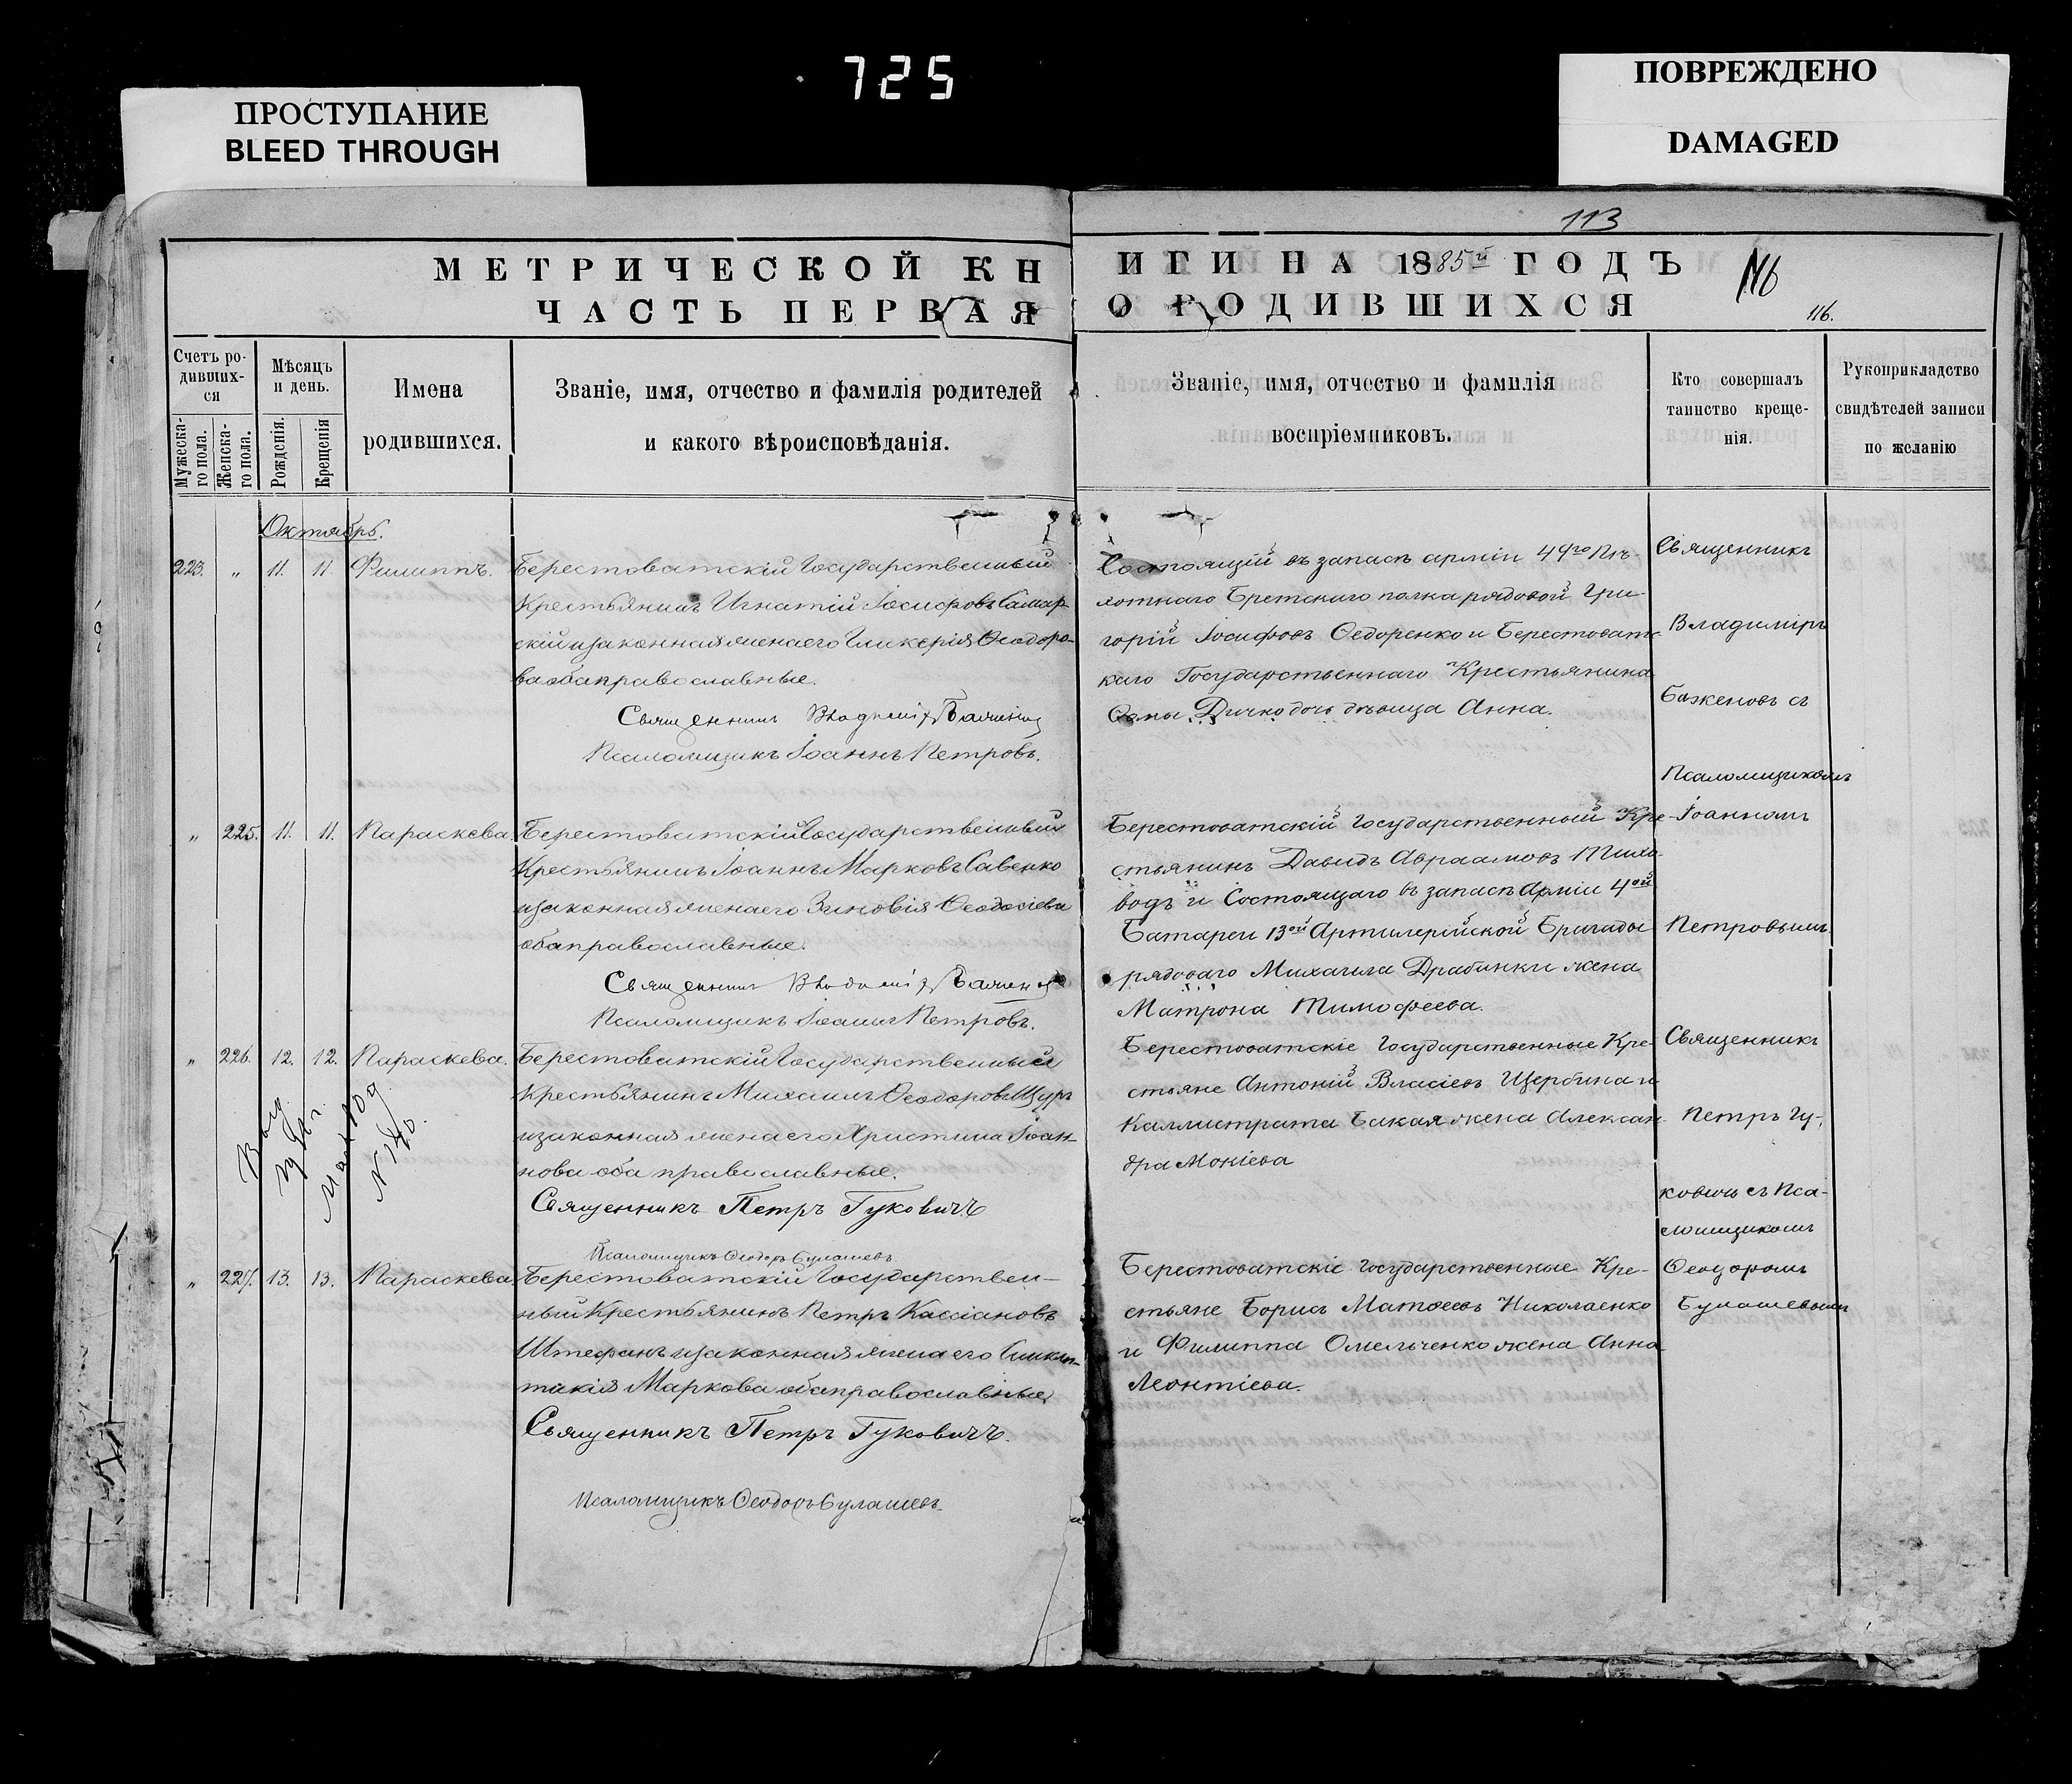 725
ПРОСТУПАНИЕ
BLEED THROUGH
ПОВРЕЖДЕНО
DAMAGED
113
МЕТРИЧЕСКОЙ КН
ИГИ НА 1885й ГОДЪ
116
ЧАСТЬ ПЕРВАЯ
О РОДИВШИХСЯ
116.
Счетъ ро-
дивших-
ся
Мужеска-
го пола.
Женска-
го пола.
Мѣсяцъ
и день.
Рожденія.
Крещенія
Имена
родившихся.
Званіе, имя, отчество и фамилія родителей
и какого вѣроисповѣданія.
Званіе, имя, отчество и фамилія
воспріемниковъ.
Кто совершалъ
таинство креще-
нія.
Рукоприкладство
свидѣтелей записи
по желанію
Октябрь.
223. " 11. 11. Филиппъ.
Берестоватскій Государственный
Крестьянинъ Игнатій Іосифовъ Самар-
скій и законная жена его Гликерія Ѳеодоро-
ва оба православные.
Священникъ Владиміръ Баженовъ
Псаломщикъ Іоаннъ Петровъ.
Состоящій въ запасѣ арміи 49го Пѣ-
хотнаго Бретскаго полка рядовой Гри-
горій Іосифовъ Ѳедоренко и Берестоватс
каго Государственнаго Крестьянина
Ѳомы Дичко дочь дѣвица Анна.
Священникъ
Владиміръ
Баженовъ съ
Псаломщикомъ
Іоанномъ
Петровымъ
" 225. 11. 11. Параскева
Берестоватскій Государственный
Крестьянинъ Іоаннъ Марковъ Савенко
и законная жена его Зиновія Ѳеодосіева
оба православные.
Священникъ Владиміръ Баженовъ
Псаломщикъ Іоаннъ Петровъ.
Берестоватскій Государственный Кре-
стьянинъ Давидъ Авраамовъ Тихо-
водъ и Состоящаго въ запасѣ Арміи 4ой
Батареи 13ой Артилерійской Бригады
рядоваго Михаила Драбинки жена
Матрона Тимофеева.
" 226. 12. 12. Параскева.
Берестоватскій Государственный
Крестьянинъ Михаилъ Ѳеодоровъ Щуръ
и законная жена его Христина Іоан-
нова оба православные.
Священникъ Петръ Гуковичъ
Псаломщикъ Ѳеодоръ Булашевъ
Берестоватскіе Государственные Кре-
стьяне Антоній Власіевъ Щербина и
Каллистрата Бакая жена Алексан-
дра Мокіева
Священникъ
Петръ Гу-
ковичъ съ Пса-
ломщикомъ
Ѳеодоромъ
Булашевымъ
" 227. 13. 13. Параскева
Берестоватскій Государствен-
ный Крестьянинъ Петръ Кассіановъ
Штефанъ и законная жена его Синкли-
тикія Маркова оба православные
Священникъ Петръ Гуковичъ.
Псаломщикъ Ѳеодоръ Булашевъ
Берестоватскіе Государственные Кре-
стьяне Борисъ Матѳеевъ Николаенко
и Филиппа Омельченко жена Анна
Леонтіева.